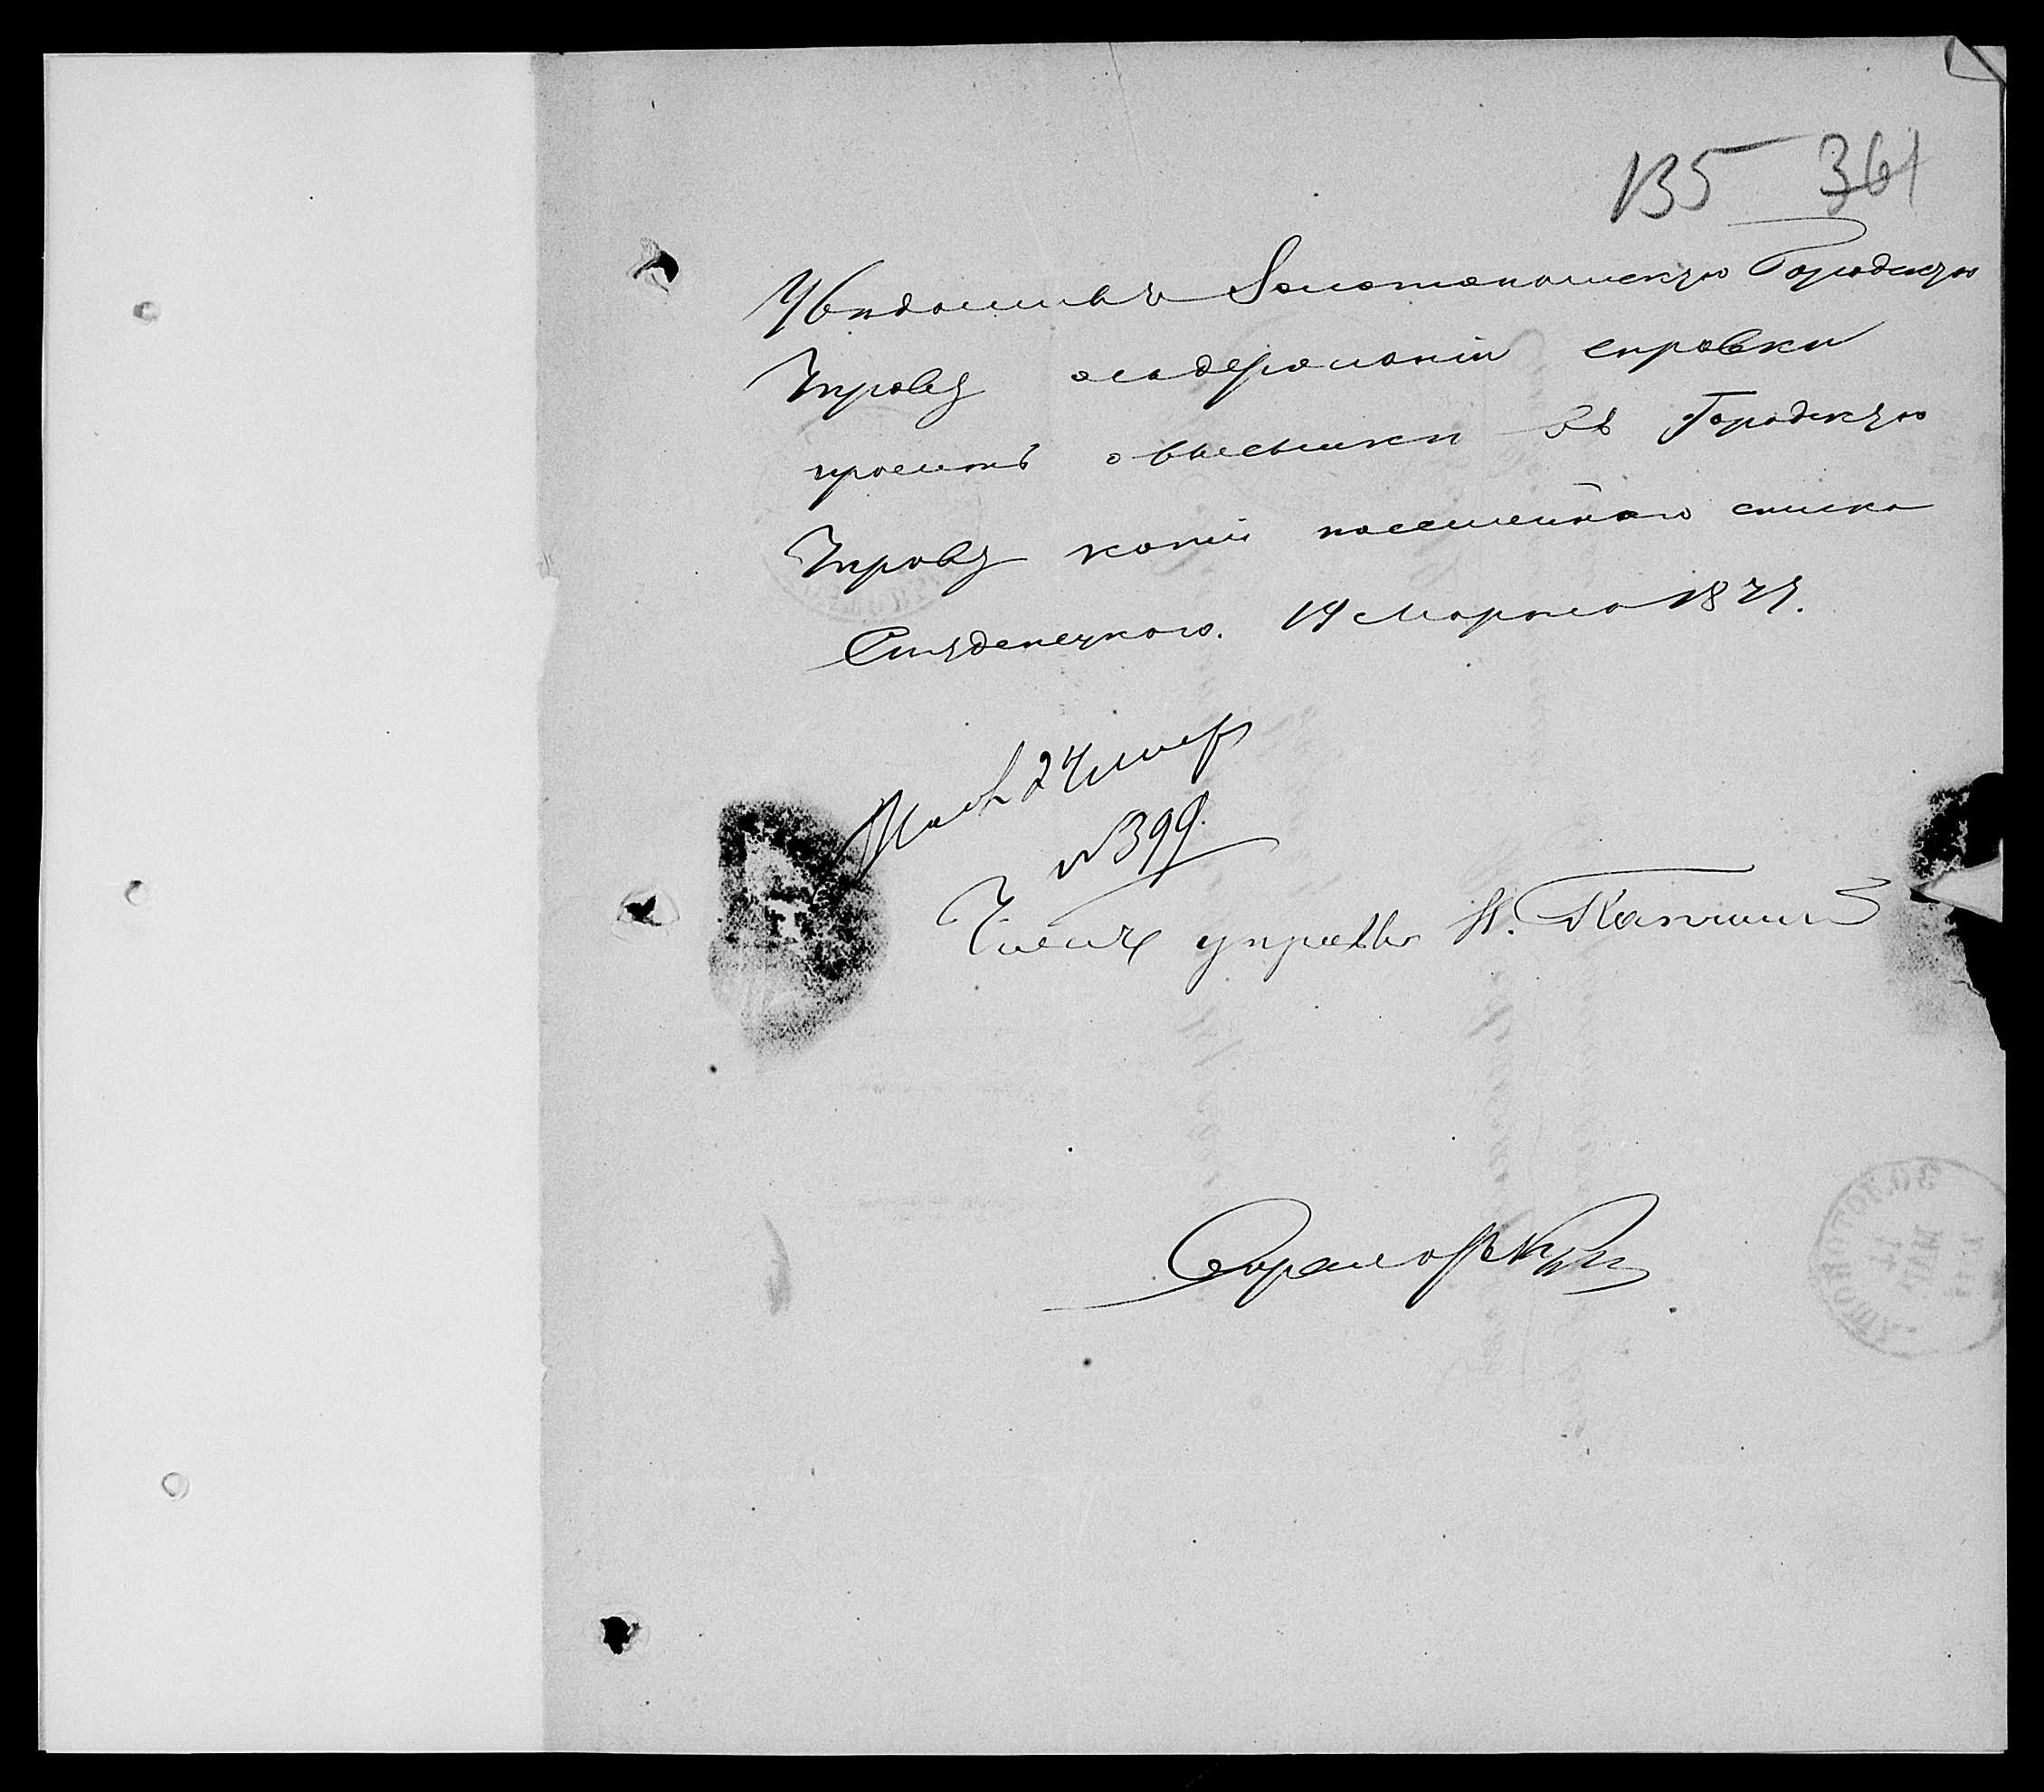 135 361
Увѣдомивъ Золотоношскую Городскую
Управу о содержаніи справки
просить о высылки въ Городскую
Управу копіи посемейнаго списка
Студенецкого. 19 Марта 1877.
24 мар
№ 399.
Членъ управы Н.